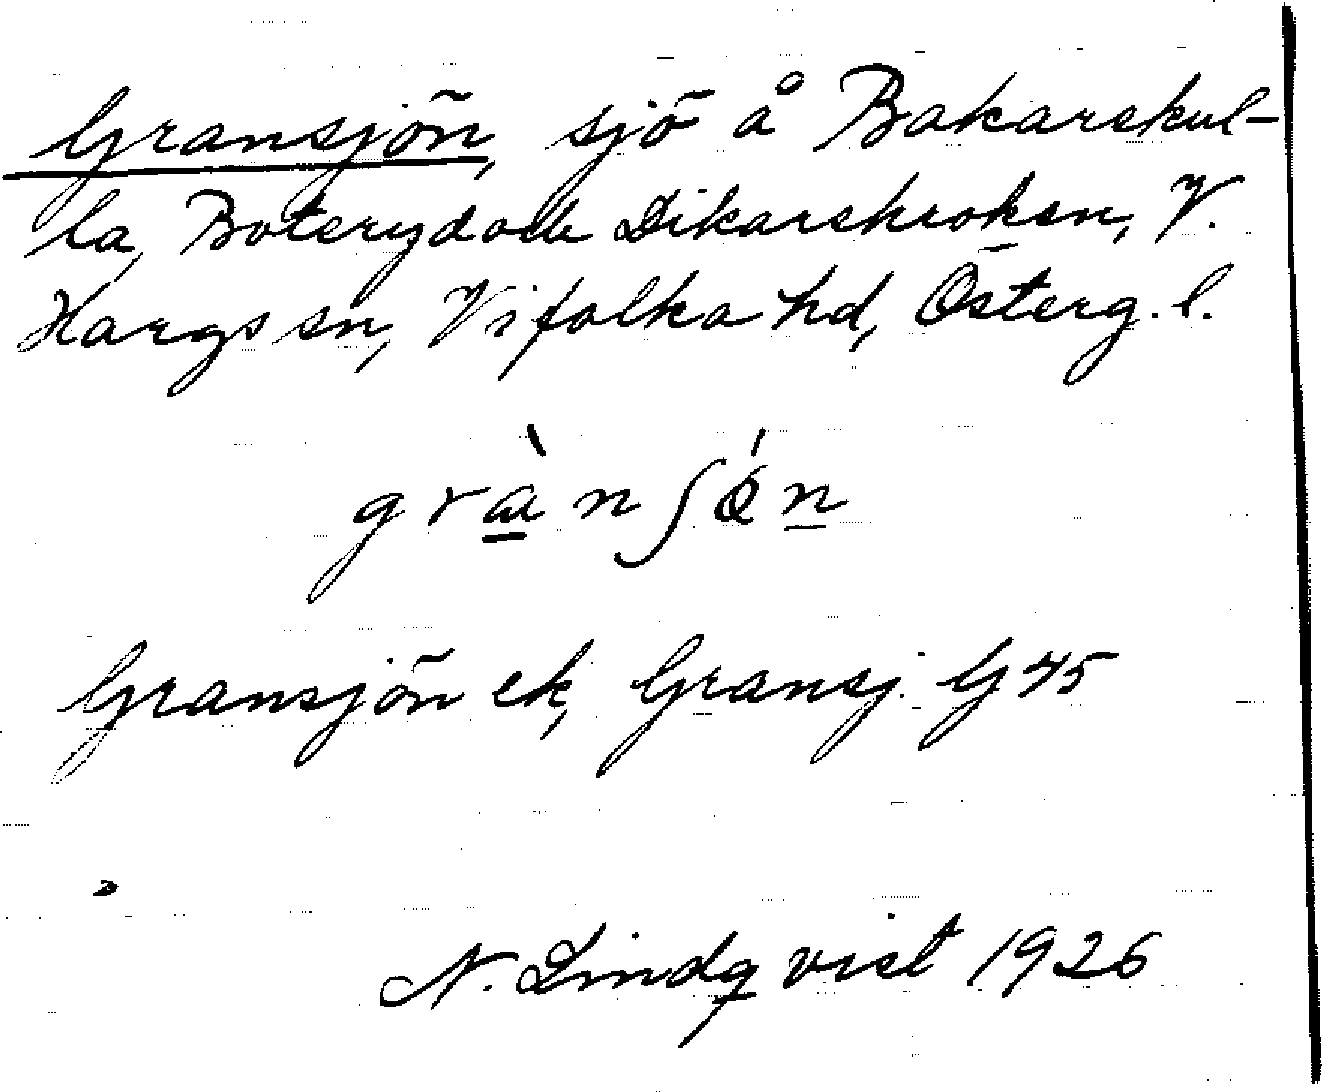 Gransjön, sjö å Bakarekul-
la, Boteryd och Dikarekroken, V.
Hargs sn, Vifolka hd, Österg. l.
græ̀nʃǿn
Gransjön ek, Gransj. G 45
N. Lindqvist 1926